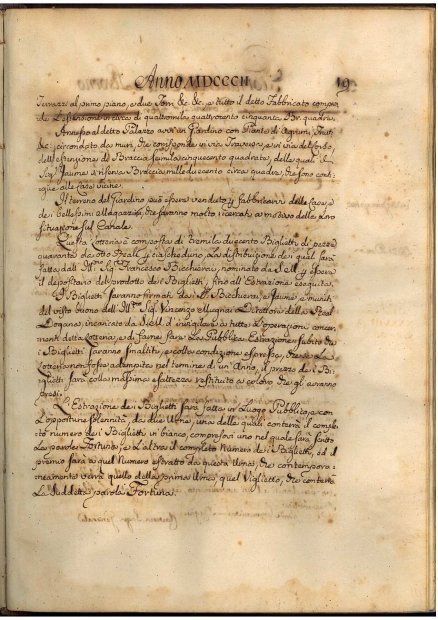 Anno MDCCCII
19
Terrazzi al primo piano, e due Torri &c. &c., e tutto il detto Fabbricato compren-
de l'estensione in circa di quattromila quattrocento cinquanta Br. quadre.
Annesso al detto Palazzo avvi un Giardino con Piante di Agrumi, Frutti
&c. circondato da muri, che corrisponde in via Traversa, e in via del Fosso,
dell'estensione di Braccia seimila cinquecento quadrate, della quali il
Sig. Jaume si riserva Braccia mille duecento circa quadre, che sono conti-
gue alle case vicine.
Il terreno del Giardino può essere venduto, e fabbricarvi delle case, e
dei bellissimi Magazzini, che saranno molto ricercati a motivo della loro
situazione sul Canale.
Questa Lotteria è composta di tremila duecento Biglietti di pezze
quaranta da otto Reali ciascheduno, la distribuzione dei quali sarà
fatta dall'Ill. Sig. Francesco Bicchierai, nominato da per essere
il depositario del prodotto dei Biglietti, fino all'Estrazione eseguita.
I Biglietti saranno firmati da Bicchierai, e Jaume, e muniti
del visto buono dell'Ill. Sig. Vincenzo Mugnai Direttore della Real
Dogana, incaricato da d'invigilare a tutte l'operazioni concer-
nenti detta Lotteria, e di farne fare la Pubblica Estrazione subito che
i Biglietti saranno smaltiti, e colla condizione espressa, che se la
Lotteria non fosse adempita nel termine di un'Anno, il prezzo dei Bi-
glietti sarà colla massima esattezza restituito a coloro che gli avranno
presi.
L'Estrazione dei Biglietti sarà fatta in Luogo Pubblico, e con
l'opportune solennità, da due Urne, una delle quali conterrà il comple-
to numero dei Biglietti in bianco, compresovi uno nel quale sarà scritto
la parola Fortuna, e l'altra il completo Numero dei Biglietti, ed il
premio sarà a quel Numero estratto da questa Urna, che contempora-
neamente verrà quello della prima Urna, quel Viglietto, che conterrà
la suddetta parola Fortuna.